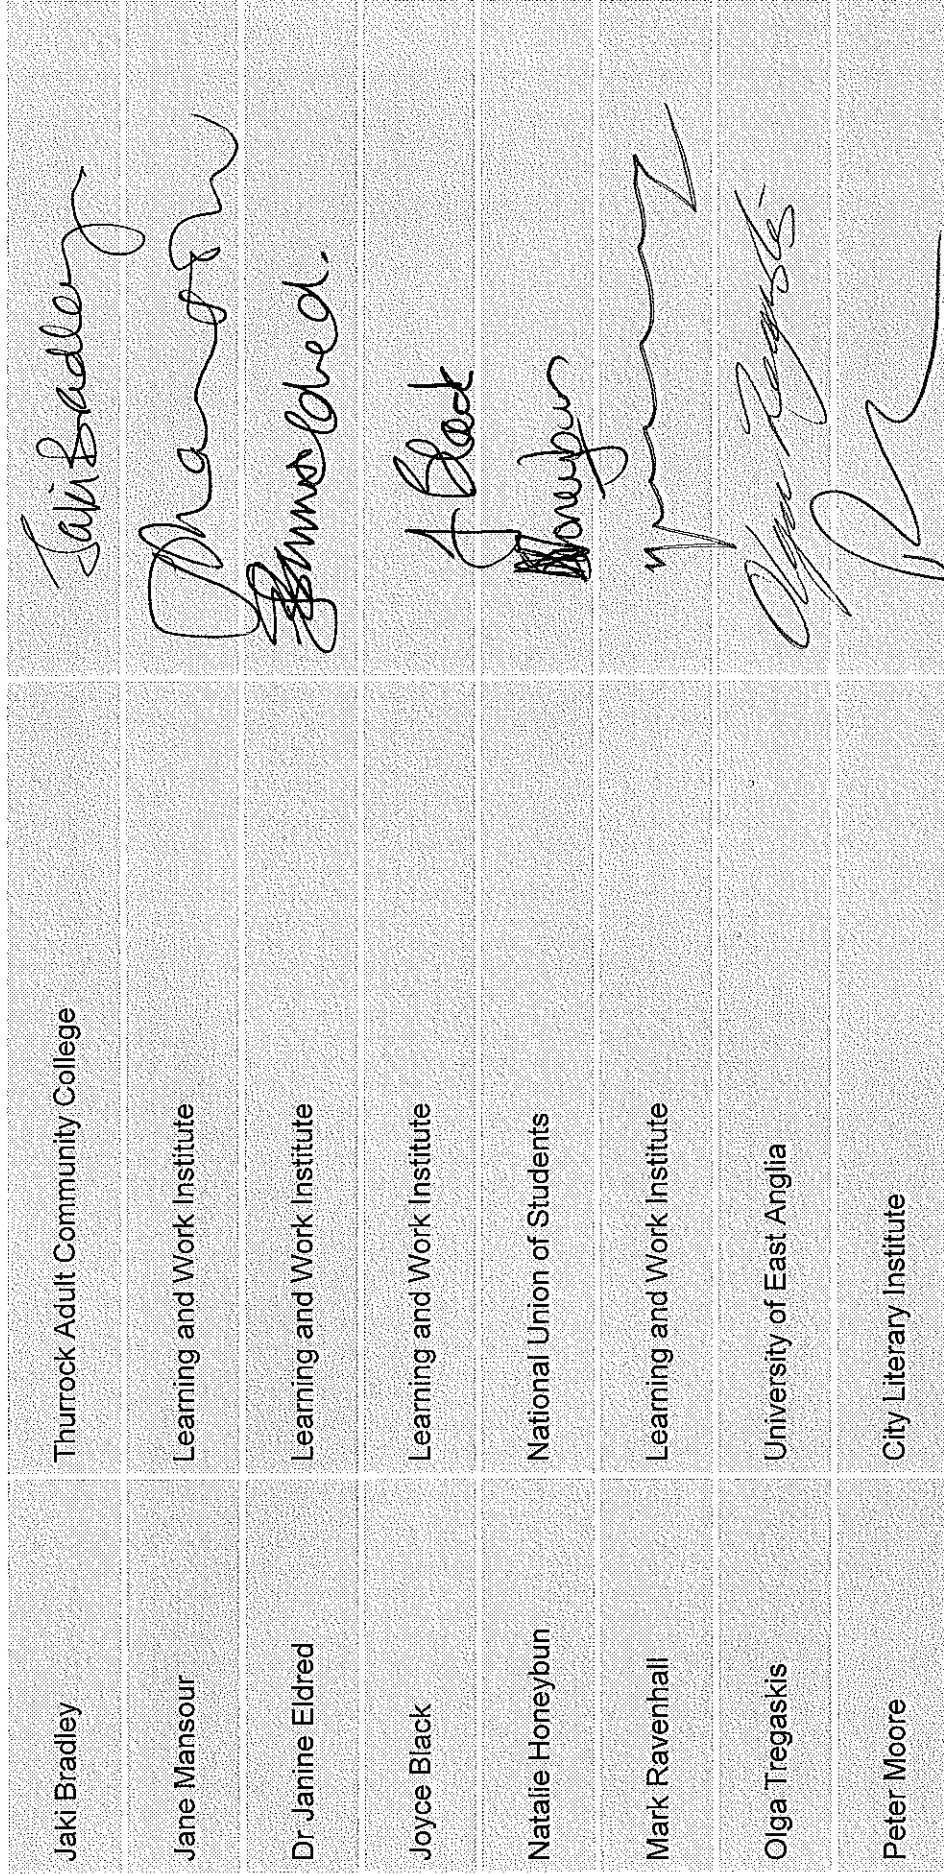 Jaki Bradley Thurrock Adult Community College Jaki Bradley
Jane Mansour Learning and Work Institute
Dr Janine Eldred Learning and Work Institute
Joyce Black Learning and Work Institute J Black
Natalie Honeybun National Union of Students Honeybun
Mark Ravenhall Learning and Work Institute
Olga Tregaskis University of East Anglia Olga Tregaskis
Peter Moore City Literary Institute